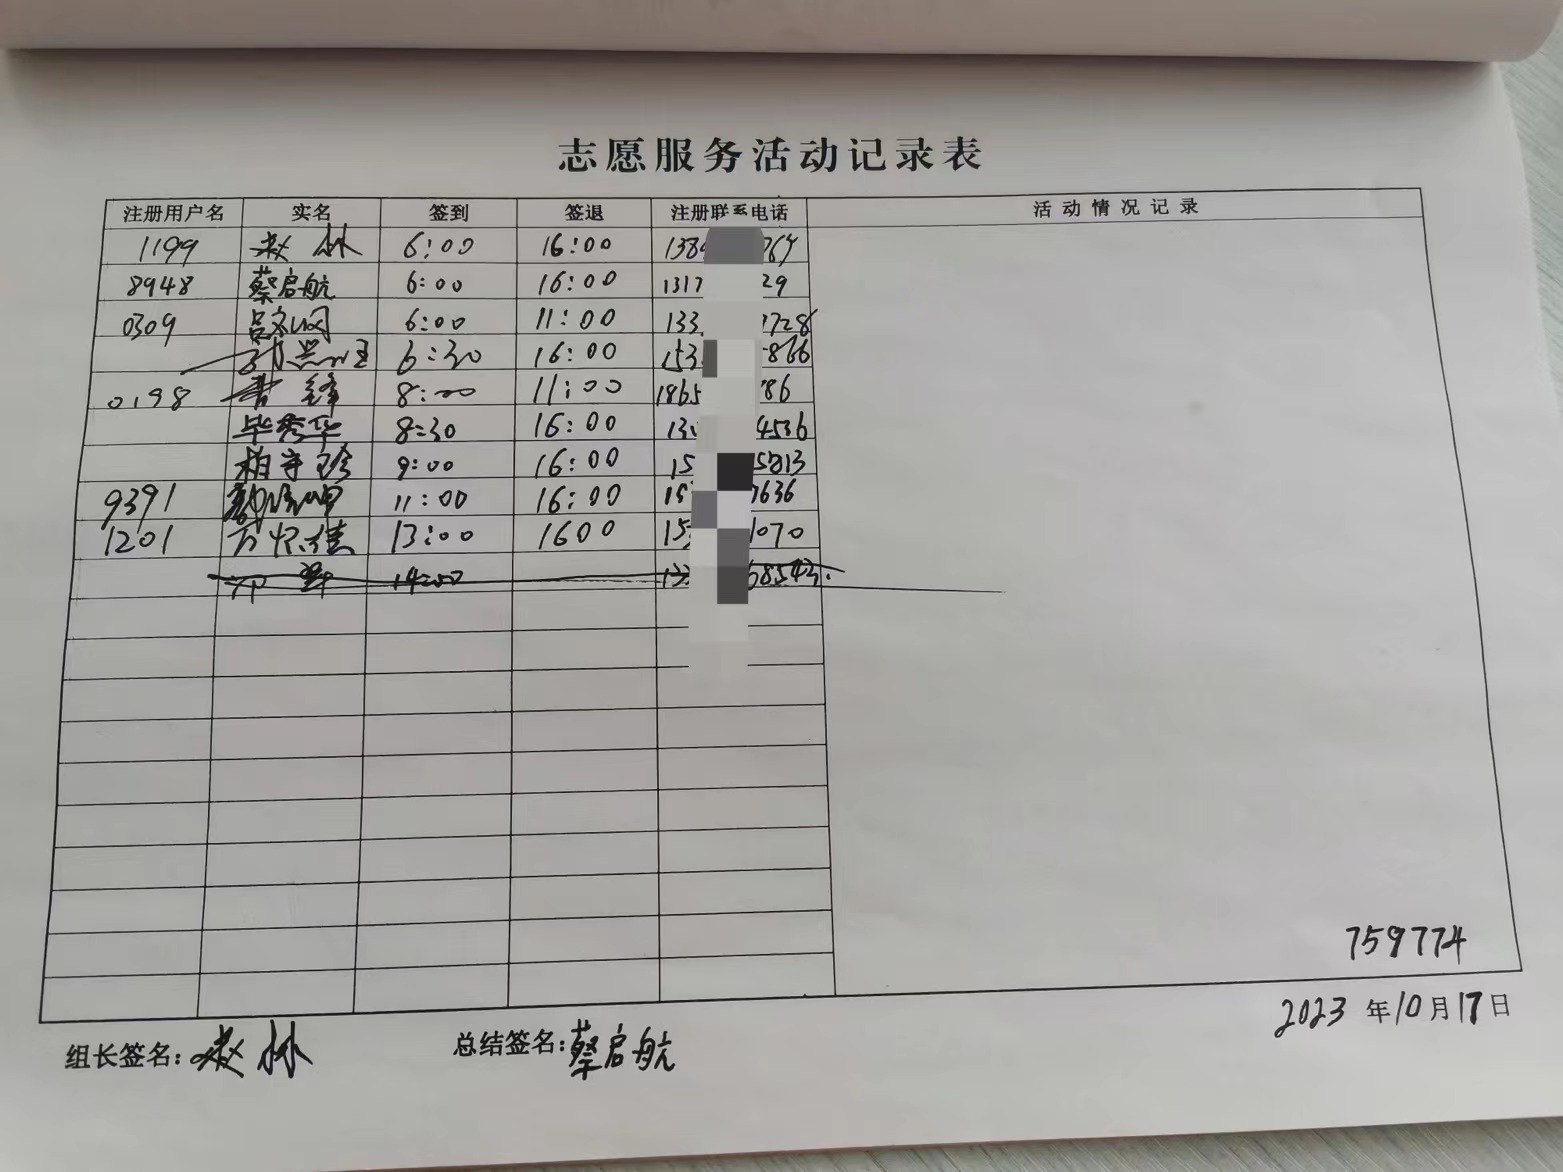 志愿服务活动记录表
注册用户名 实名 签到 签退 注册联系电话 活动情况记录
1199 赵林 6:00 16:00 138 764
8948 蔡启航 6:00 16:00 1317 29
0309 6:00 11:00 133 1728
6:30 16:00 153 866
0198 曹锋 8:00 11:00 1865 786
毕秀华 8:30 16:00 130 4536
柏守珍 9:00 16:00 15 5813
9391 11:00 16:00 15 7636
1201 万怀佳 13:00 1600 15 1070
14:00 13 68543
759774
2023年10月17日
组长签名:赵林 总结签名:蔡启航